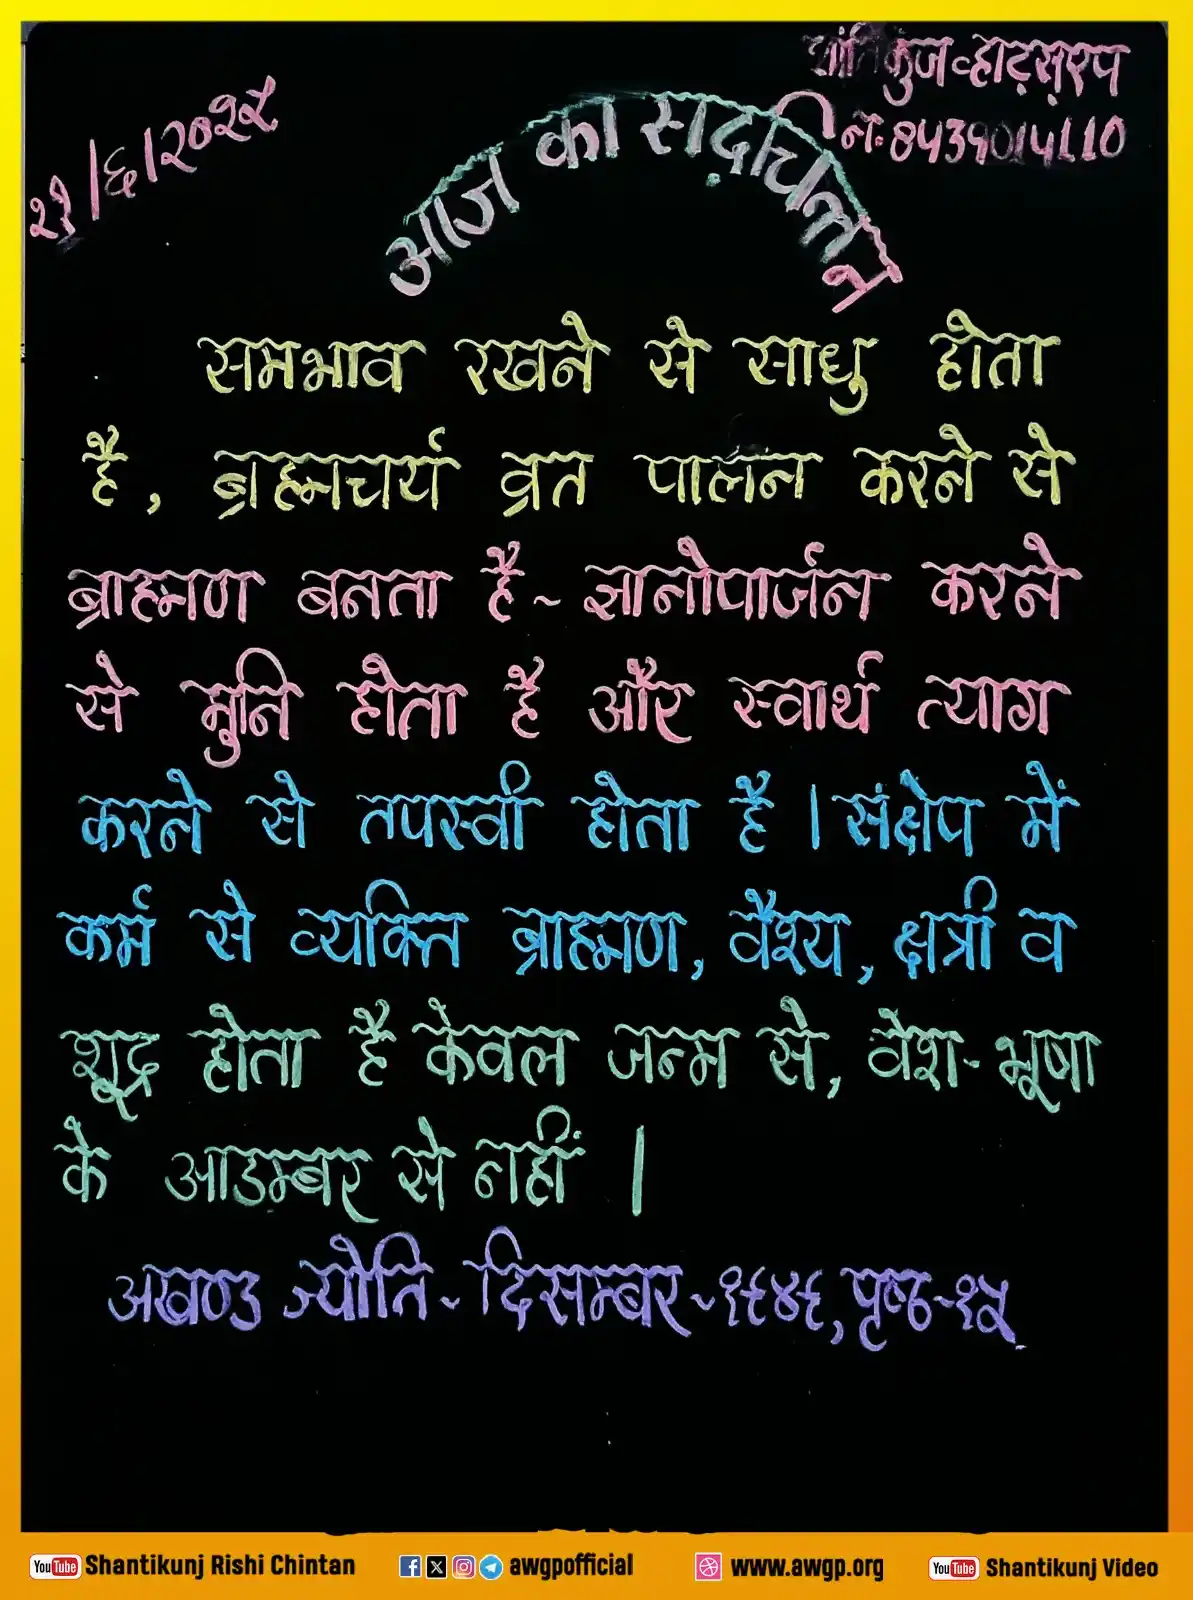 शांतिकुंज व्हाट्सएप
नं. 8439014110
२१/६/२०२५
आज का सद्चिन्तन
समभाव रखने से साधु होता
है, ब्रह्मचर्य व्रत पालन करने से
ब्राह्मण बनता है- ज्ञानोपार्जन करने
से मुनि होता है और स्वार्थ त्याग
करने से तपस्वी होता है। संक्षेप में
कर्म से व्यक्ति ब्राह्मण, वैश्य, क्षत्री व
शूद्र होता है केवल जन्म से, वेश-भूषा
के आडम्बर से नहीं।
अखण्ड ज्योति- दिसम्बर-१९४६, पृष्ठ-१५
YouTube Shantikunj Rishi Chintan awgpofficial www.awgp.org YouTube Shantikunj Video